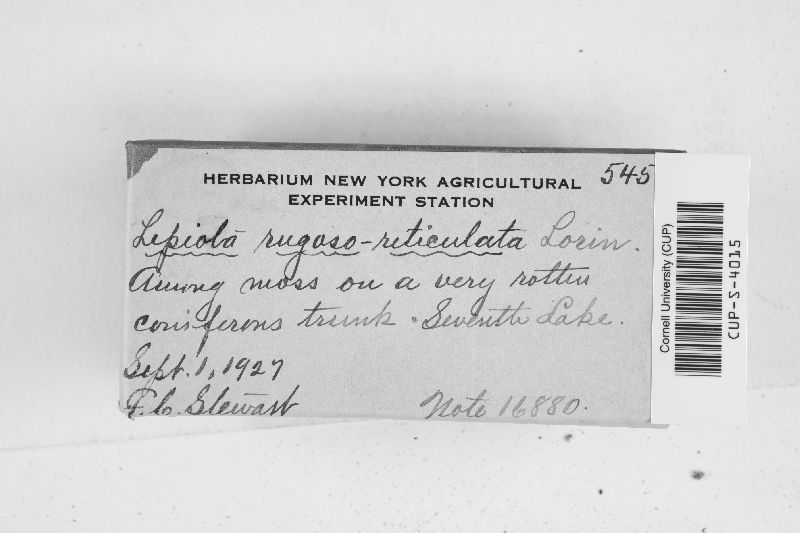 HERBARIUM NEW YORK AGRICULTURAL
EXPERIMENT STATION
545
Lepiota rugoso-reticulata Lorin.
Among moss on a very rotten
coniferous trunk. Seventh Lake.
Sept. 1, 1927
F.C. Stewart
Note 16880.
Cornell University (CUP)
CUP-S-4015